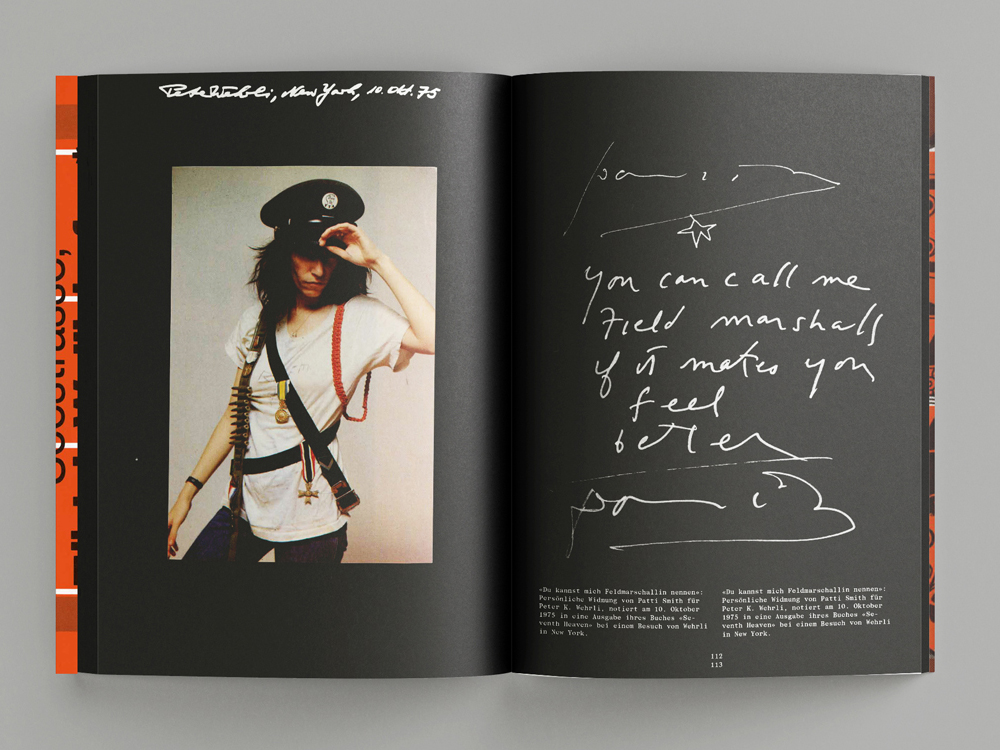 Peter Wehrli, New York, 10. Okt. 75
you can call me
Field marshall
if it makes you
feel
better
«Du kannst mich Feldmarschallin nennen»:
Persönliche Widmung von Patti Smith für
Peter K. Wehrli, notiert am 10. Oktober
1975 in eine Ausgabe ihres Buches «Se-
venth Heaven» bei einem Besuch von Wehrli
in New York.
«Du kannst mich Feldmarschallin nennen»:
Persönliche Widmung von Patti Smith für
Peter K. Wehrli, notiert am 10. Oktober
1975 in eine Ausgabe ihres Buches «Se-
venth Heaven» bei einem Besuch von Wehrli
in New York.
112
113